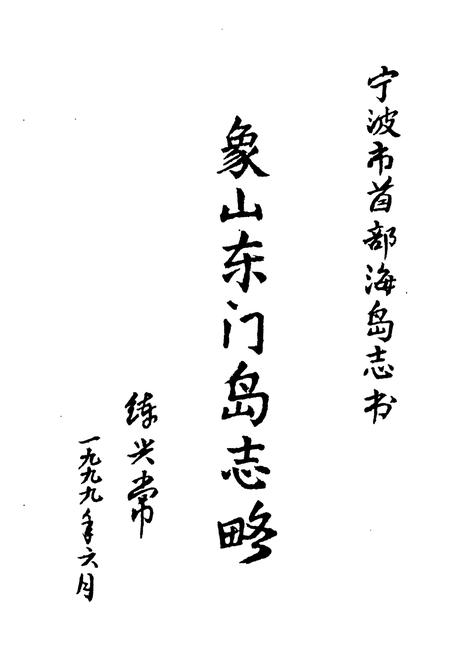 宁波市首部海岛志书
象山东门岛志略
练兴常
一九九九年六月